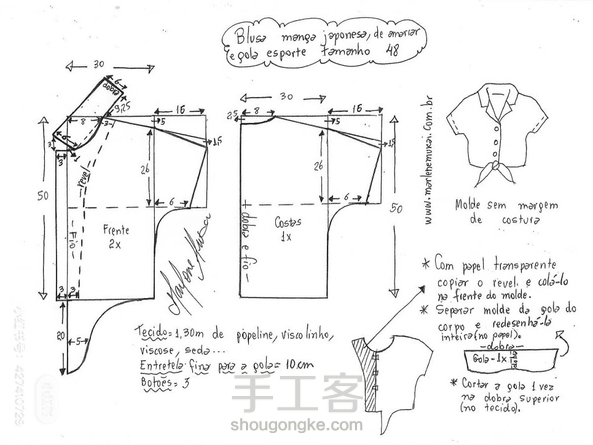 Blusa manga japonesa, de amarrar
e gola esporte tamanho 48
30
6
dobra
9,25
8
3
16
5
15
26
6
3
50
revel
Fio
Frente
2x
3
3
20
5
30
25
8
16
5
15
26
6
50
dobra e fio
Costas
1x
Marlene Mukai
www.marlenemukai.com.br
Molde sem margem
de costura
* Com papel transparente
copiar o revel e colá-lo
na frente do molde.
* Separar molde da gola do
corpo e redesenhá-la
inteira (no papel).
dobra
Gola - 1x
* Cortar a gola 1 vez
na dobra superior
(no tecido).
Tecido = 1,30m de popeline, viscolinho,
viscose, seda...
Entretela: fina para a gola = 10cm
Botões = 3
手工客
shougongke.com